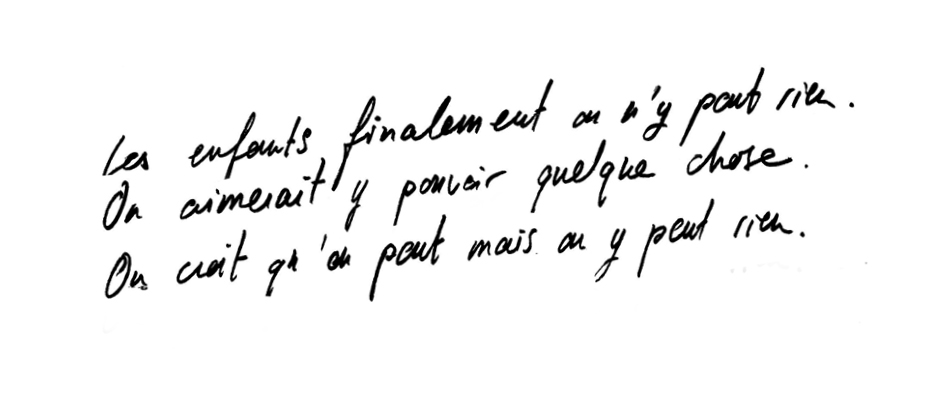 Les enfants finalement on n'y peut rien.
On aimerait y pouvoir quelque chose.
On croit qu'on peut mais on y peut rien.